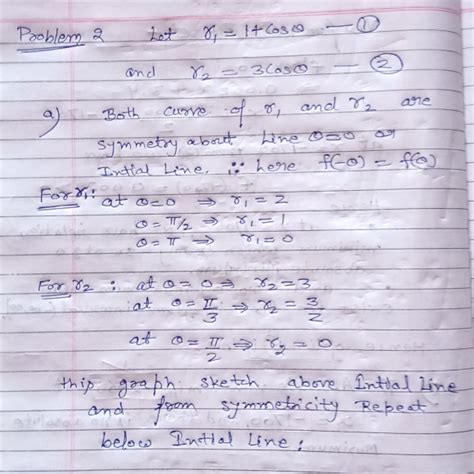 Problem 2 Let r₁ = 1+Cosθ — ①
and r₂ = 3Cosθ — ②
a) Both curve of r₁ and r₂ are
symmetry about Line θ=0 or
Intial Line. ∵ here f(-θ) = f(θ)
For r₁: at θ=0 ⇒ r₁ = 2
θ = π/2 ⇒ r₁ = 1
θ = π ⇒ r₁ = 0
For r₂ : at θ = 0 ⇒ r₂ = 3
at θ = π/3 ⇒ r₂ = 3/2
at θ = π/2 ⇒ r₂ = 0
this graph sketch above Intial Line
and from symmetricity Repeat
below Intial Line.